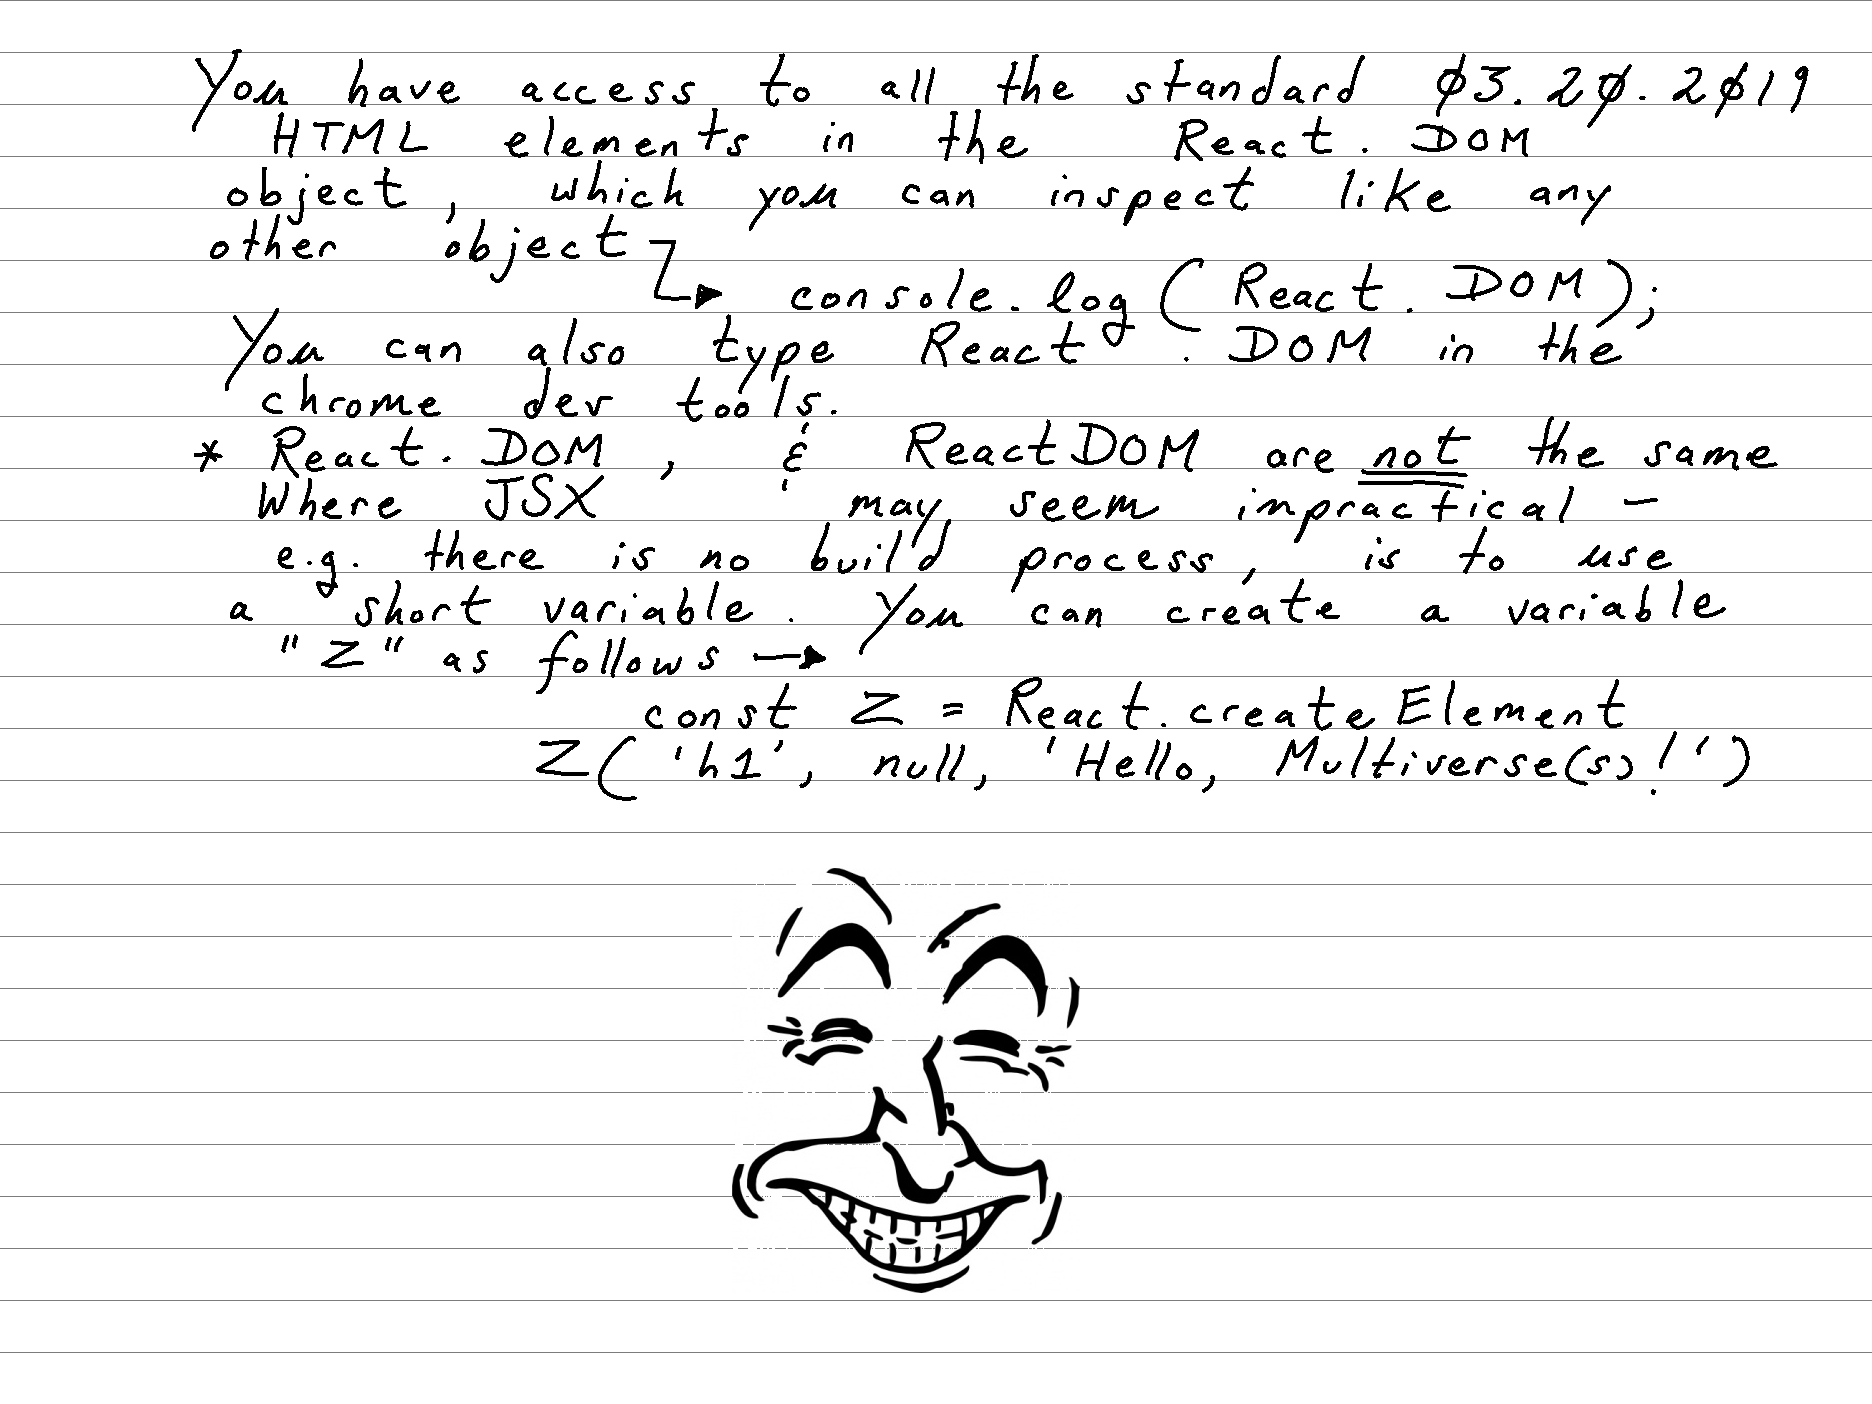 You have access to all the standard 03.20.2019
HTML elements in the React.DOM
object, which you can inspect like any
other object
console.log(React.DOM);
You can also type React.DOM in the
chrome dev tools.
* React.DOM, & ReactDOM are not the same
Where JSX may seem impractical -
e.g. there is no build process, is to use
a short variable. You can create a variable
"Z" as follows →
const Z = React.createElement
Z('h1', null, 'Hello, Multiverse(s)!')